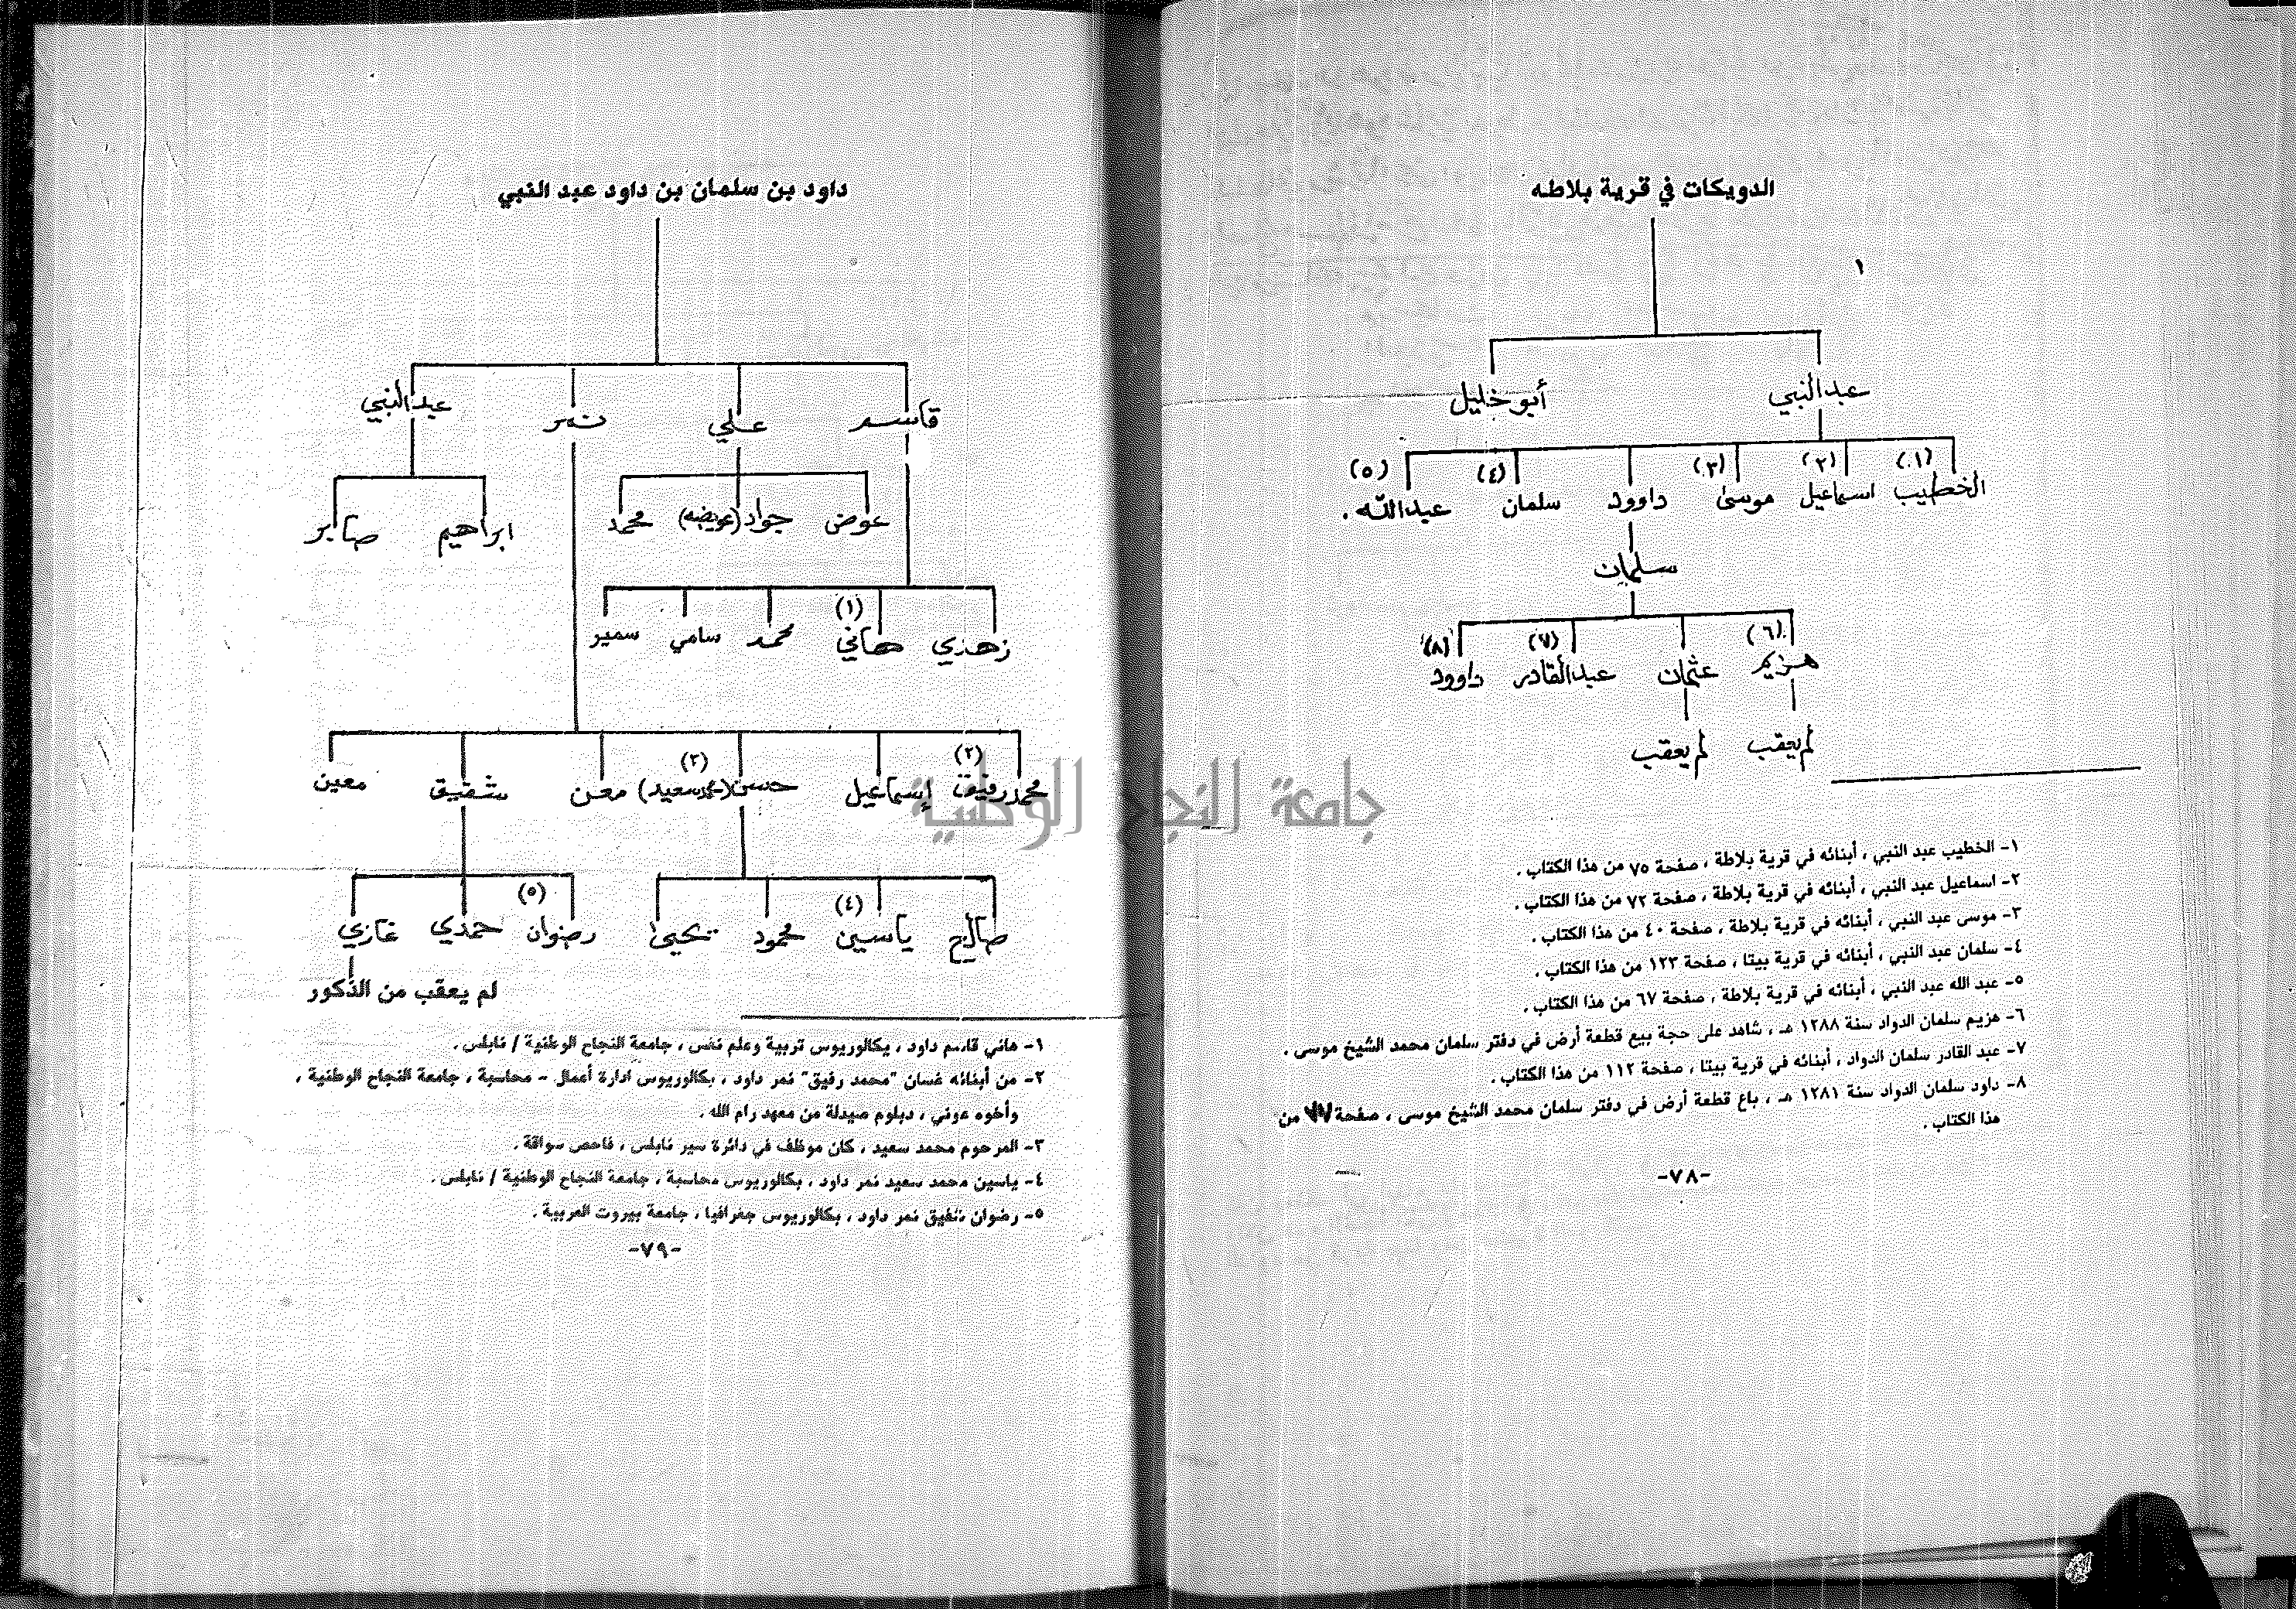 الدويكات في قرية بلاطه
١
عبد النبي أبو خليل
(١) (٢) (٣) (٤) (٥)
الخطيب اسماعيل موسى داوود سلمان عبد الله .
سلمان
(٦) (٧) (٨)
هزيم عثمان عبد القادر داوود
لم يعقب لم يعقب
١- الخطيب عبد النبي ، أبنائه في قرية بلاطة ، صفحة ٧٥ من هذا الكتاب .
٢- اسماعيل عبد النبي ، أبنائه في قرية بلاطة ، صفحة ٧٢ من هذا الكتاب .
٣- موسى عبد النبي ، أبنائه في قرية بلاطة ، صفحة ٤٠ من هذا الكتاب .
٤- سلمان عبد النبي ، أبنائه في قرية بيتا ، صفحة ١٢٣ من هذا الكتاب .
٥- عبد الله عبد النبي ، أبنائه في قرية بلاطة ، صفحة ٦٧ من هذا الكتاب .
٦- هزيم سلمان الدواد سنة ١٢٨٨ هـ ، شاهد على حجة بيع قطعة أرض في دفتر سلمان محمد الشيخ موسى .
٧- عبد القادر سلمان الدواد ، أبنائه في قرية بيتا ، صفحة ١١٢ من هذا الكتاب .
٨- داود سلمان الدواد سنة ١٢٨١ هـ ، باع قطعة أرض في دفتر سلمان محمد الشيخ موسى ، صفحة ٧٧ من
هذا الكتاب .
-٧٨-
داود بن سلمان بن داود عبد النبي
قاسم علي نمر عبد النبي
عوض جواد (عويضه) محمد ابراهيم صابر
(١)
زهدي هاني محمد سامي سمير
(٢) (٣)
محمد رفيق إسماعيل حسن (محمد سعيد) معن شفيق معين
(٤) (٥)
صالح ياسين محمود يحيى رضوان حمدي غازي
لم يعقب من الذكور
١- هاني قاسم داود ، بكالوريوس تربية وعلم نفس ، جامعة النجاح الوطنية / نابلس .
٢- من أبنائه غسان "محمد رفيق" نمر داود ، بكالوريوس ادارة أعمال - محاسبة ، جامعة النجاح الوطنية ،
وأخوه عوني ، دبلوم صيدلة من معهد رام الله .
٣- المرحوم محمد سعيد ، كان موظف في دائرة سير نابلس ، فاحص سواقة .
٤- ياسين محمد سعيد نمر داود ، بكالوريوس محاسبة ، جامعة النجاح الوطنية / نابلس .
٥- رضوان شفيق نمر داود ، بكالوريوس جغرافيا ، جامعة بيروت العربية .
-٧٩-
جامعة النجاح الوطنية